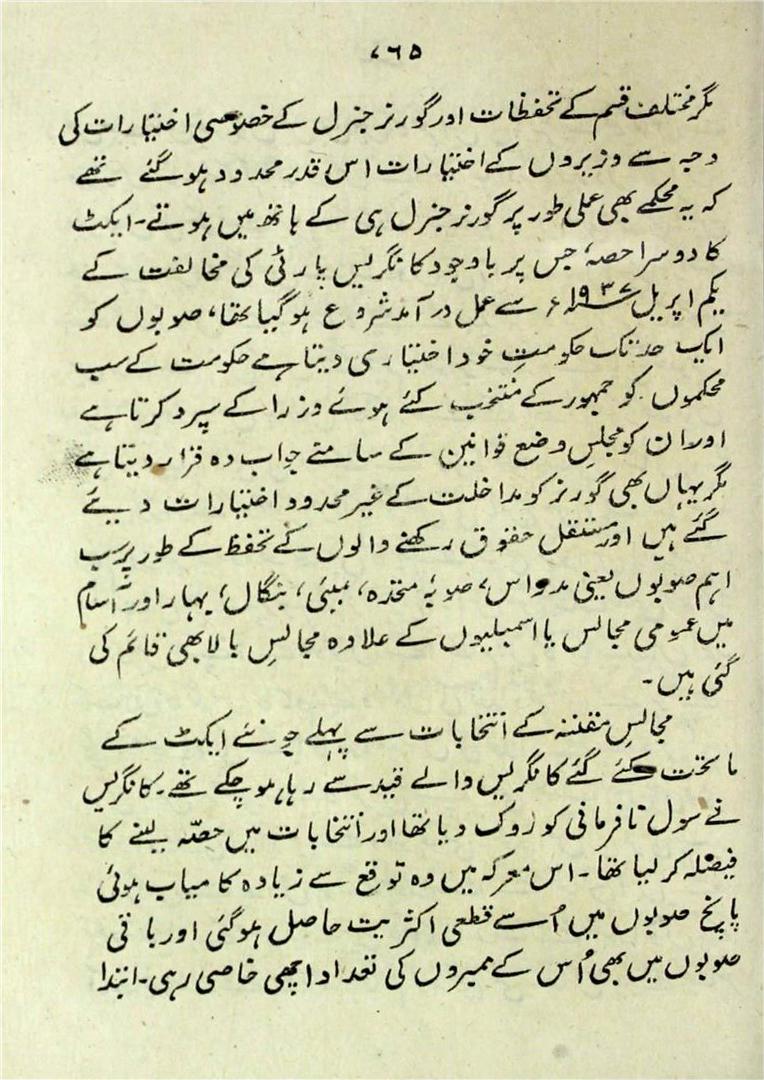 ۷۶۵
مگر مختلف قسم کے تحفظات اور گورنر جنرل کے خصوصی اختیارات کی
وجہ سے وزیروں کے اختیارات اس قدر محدود ہو گئے تھے
کہ یہ محکمے بھی عملی طور پر گورنر جنرل ہی کے ہاتھ میں ہوتے۔ ایکٹ
کا دوسرا حصہ، جس پر باوجود کانگریس پارٹی کی مخالفت کے
یکم اپریل ۱۹۳۷ء سے عمل درآمد شروع ہو گیا تھا، صوبوں کو
ایک حد تک حکومتِ خود اختیاری دیتا ہے حکومت کے سب
محکموں کو جمہور کے منتخب کئے ہوئے وزرا کے سپرد کرتا ہے
اور ان کو مجلسِ وضع قوانین کے سامنے جواب دہ قرار دیتا ہے
مگر یہاں بھی گورنر کو مداخلت کے غیر محدود اختیارات دیئے
گئے ہیں اور مستقل حقوق رکھنے والوں کے تحفظ کے طور پر سب
اہم صوبوں یعنی مدراس، صوبۂ متحدہ، بمبئی، بنگال، بہار اور آسام
میں عمومی مجالس یا اسمبلیوں کے علاوہ مجالسِ بالا بھی قائم کی
گئی ہیں۔
مجالسِ مقننہ کے انتخابات سے پہلے جو نئے ایکٹ کے
ماتحت کئے گئے کانگریس والے قید سے رہا ہو چکے تھے۔ کانگریس
نے سول نافرمانی کو روک دیا تھا اور انتخابات میں حصّہ لینے کا
فیصلہ کر لیا تھا۔ اس معرکہ میں وہ توقع سے زیادہ کامیاب ہوئی
پانچ صوبوں میں اُسے قطعی اکثریت حاصل ہو گئی اور باقی
صوبوں میں بھی اُس کے ممبروں کی تعداد اچھی خاصی رہی۔ ابتدا